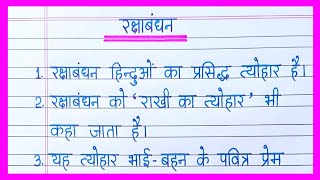 रक्षाबंधन
1. रक्षाबंधन हिन्दुओं का प्रसिद्ध त्योहार है।
2. रक्षाबंधन को 'राखी का त्योहार' भी
कहा जाता है।
3. यह त्योहार भाई-बहन के पवित्र प्रेम